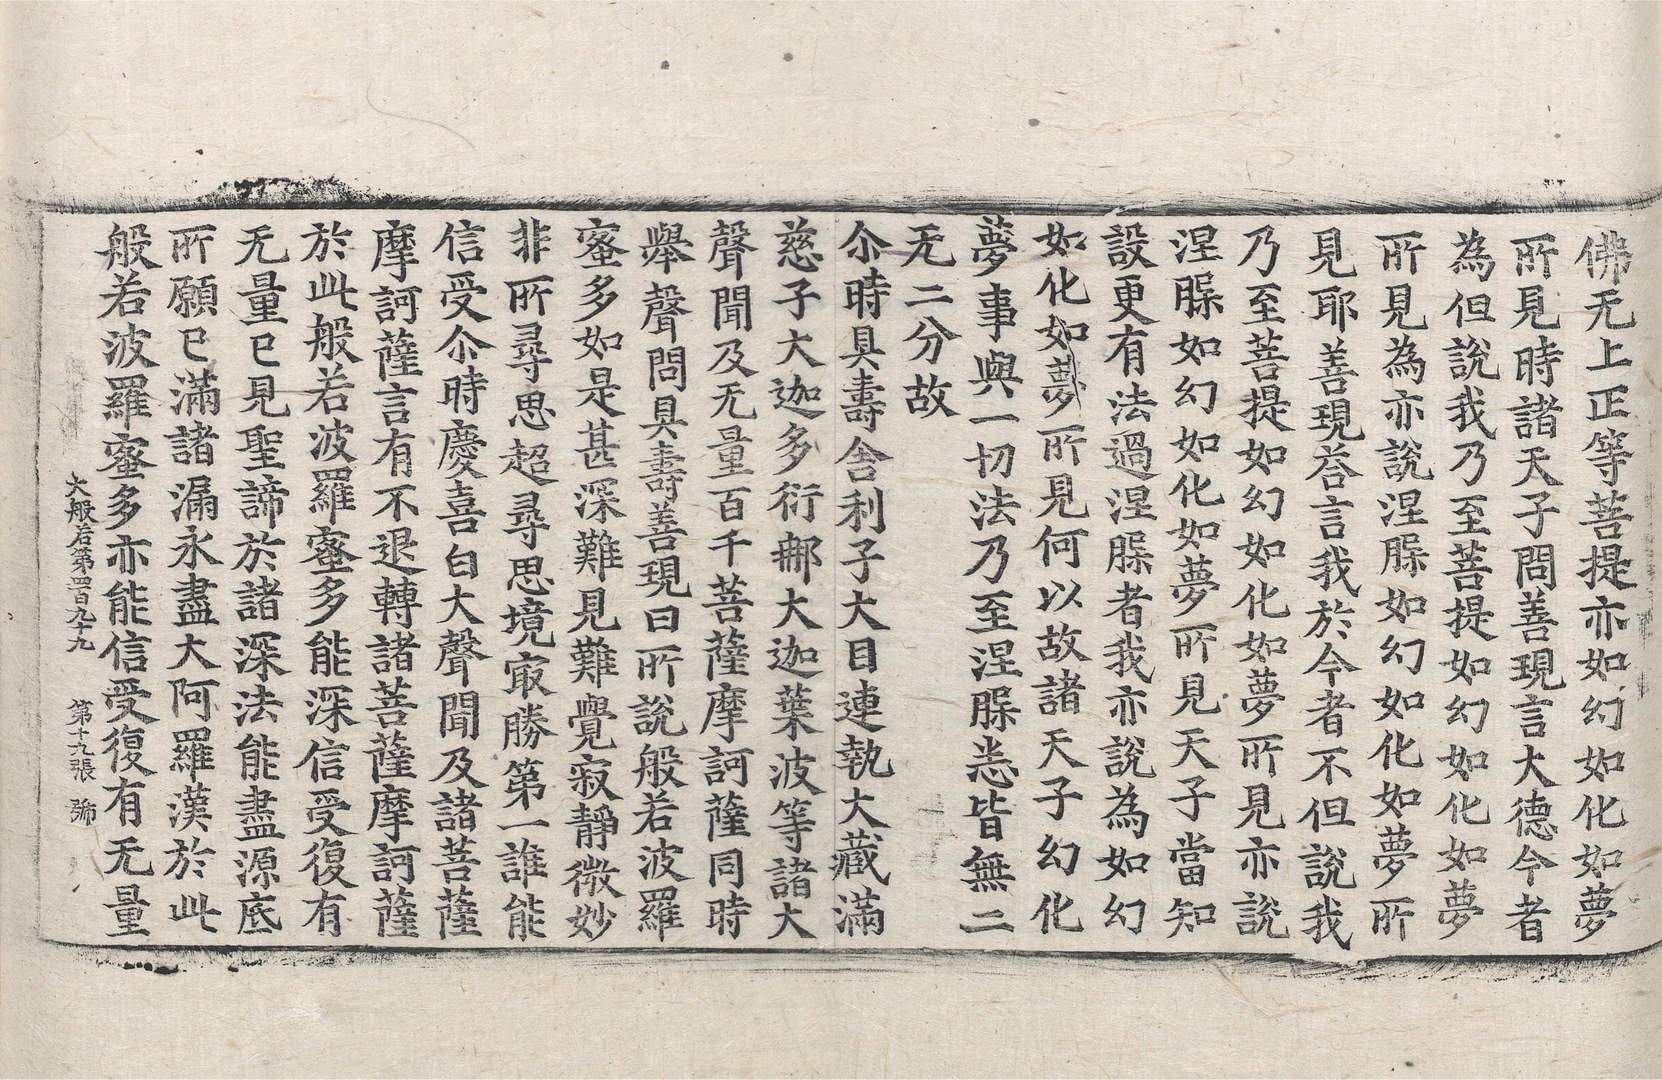 佛无上正等菩提亦如幻如化如夢
所見時諸天子問善現言大德今者
為但說我乃至菩提如幻如化如夢
所見為亦說涅槃如幻如化如夢所
見耶善現荅言我於今者不但說我
乃至菩提如幻如化如夢所見亦說
涅槃如幻如化如夢所見天子當知
設更有法過涅槃者我亦說為如幻
如化如夢所見何以故諸天子幻化
夢事與一切法乃至涅槃悉皆無二
无二分故
尒時具壽舍利子大目連執大藏滿
慈子大迦多衍那大迦葉波等諸大
聲聞及无量百千菩薩摩訶薩同時
舉聲問具壽善現曰所說般若波羅
蜜多如是甚深難見難覺寂靜微妙
非所尋思超尋思境㝡勝第一誰能
信受尒時慶喜白大聲聞及諸菩薩
摩訶薩言有不退轉諸菩薩摩訶薩
於此般若波羅蜜多能深信受復有
无量已見聖諦於諸深法能盡源底
所願已滿諸漏永盡大阿羅漢於此
般若波羅蜜多亦能信受復有无量
大般若第四百九十九　第十九張　師